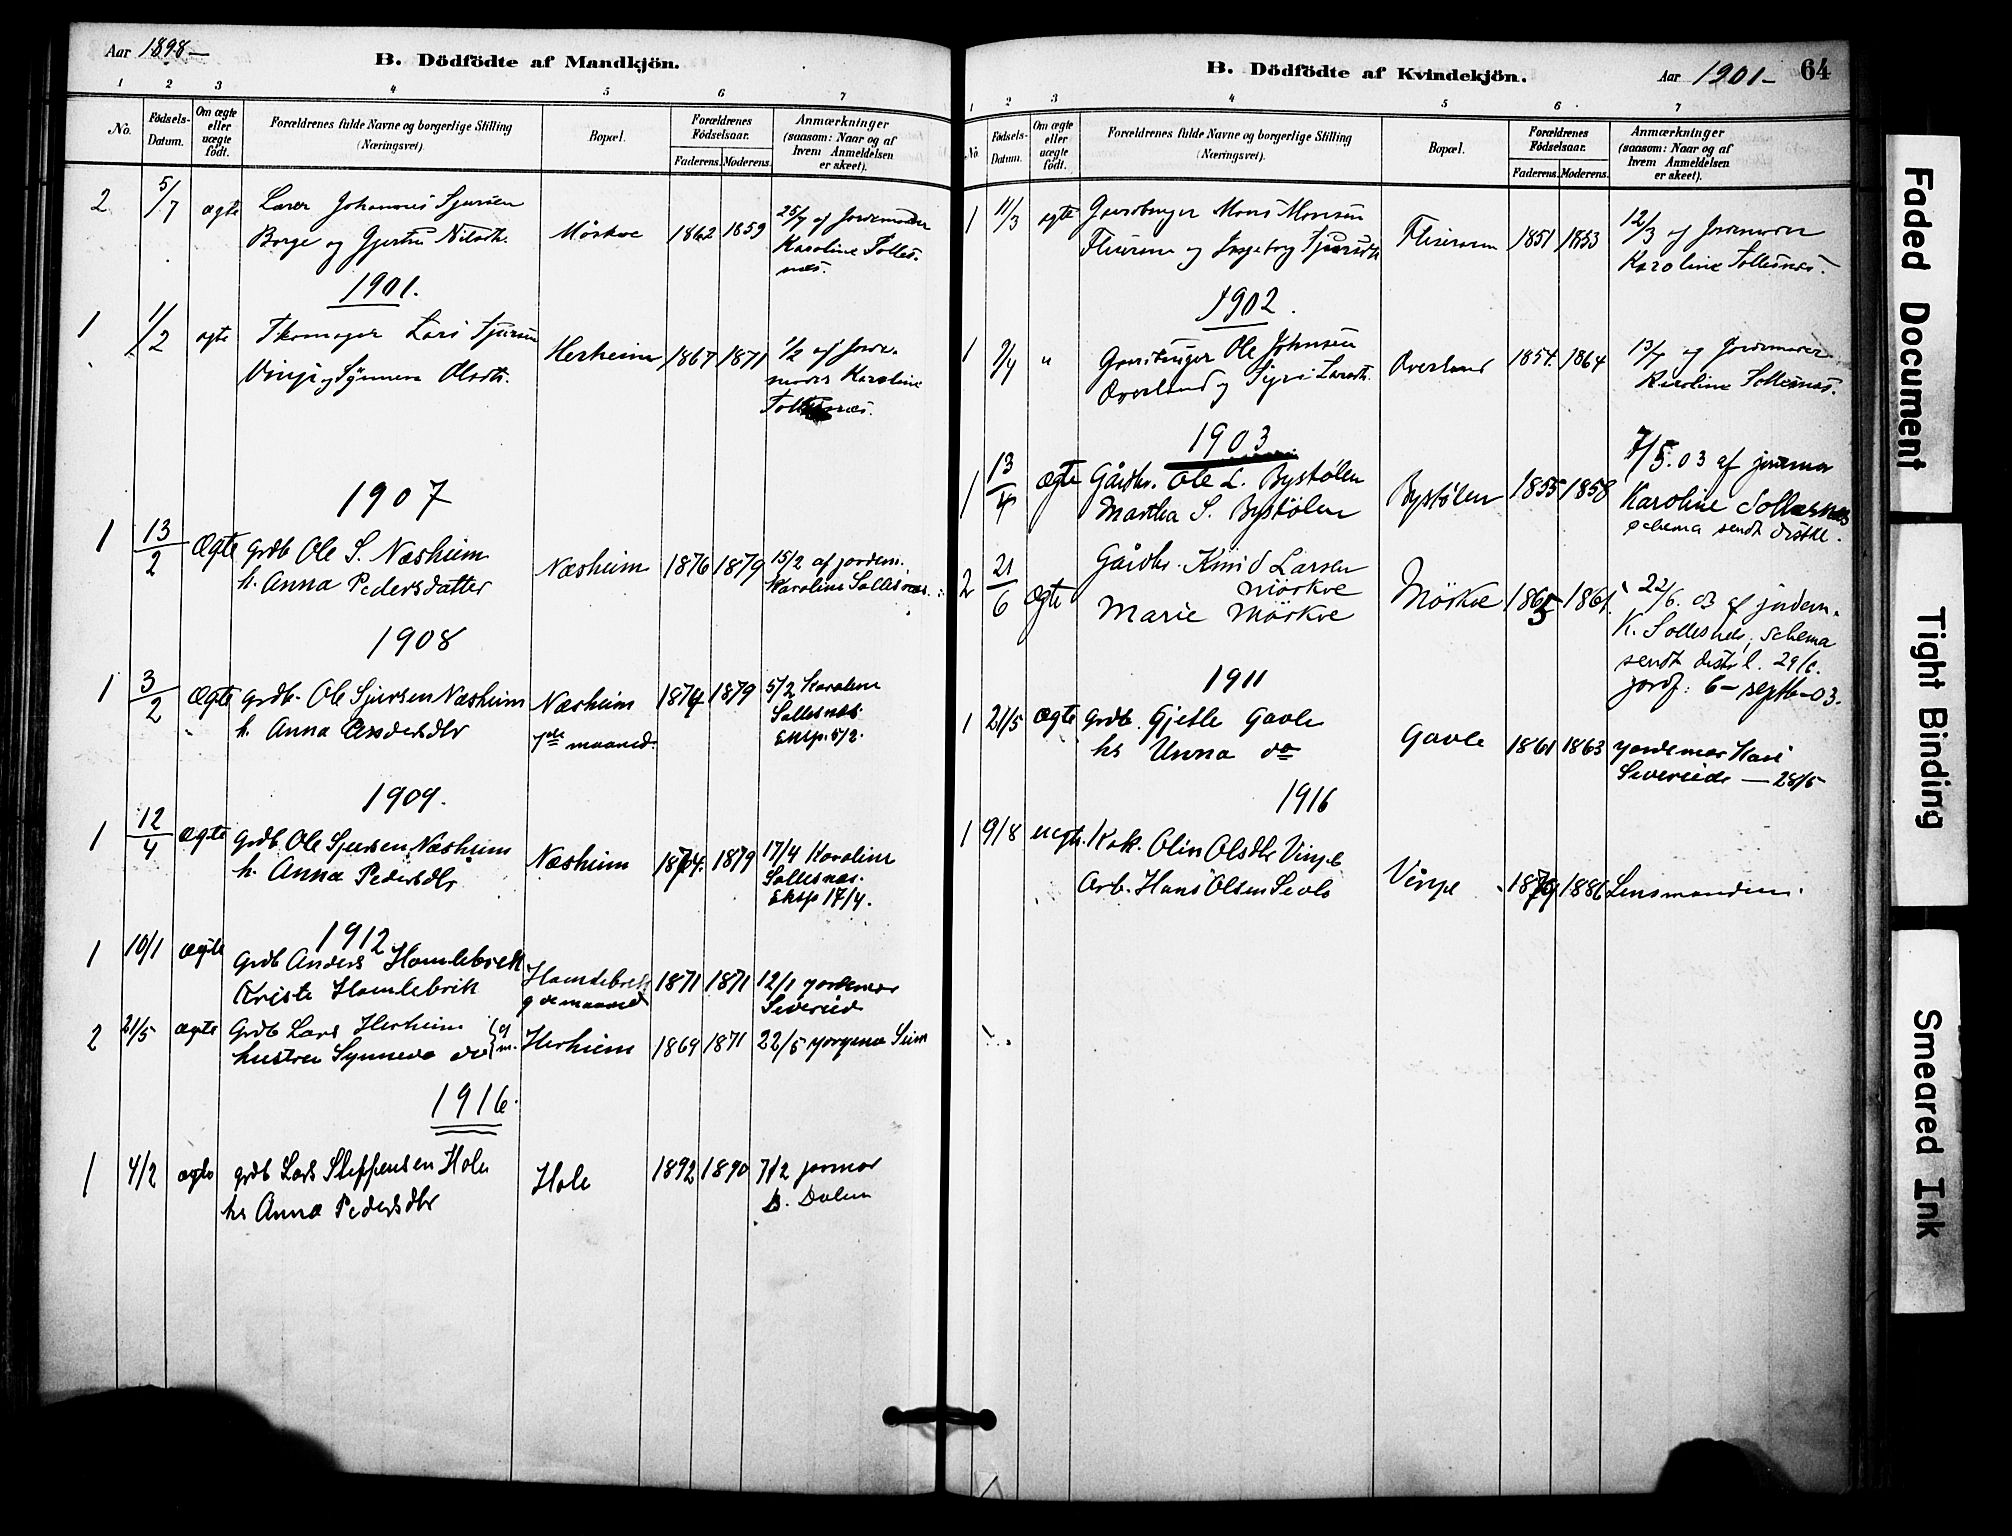 Aar 1898-
B. Dödfödte af Mandkjön.
1 2 3 4 5 6 7
No.
Födsels-Datum.
Om ægte eller uægte födt.
Forældrenes fulde Navne og borgerlige Stilling (Næringsvei).
Bopæl.
Forældrenes Födselsaar.
Faderens. Moderens.
Anmærkninger (saasom: Naar og af hvem Anmeldelsen er skeet).
2 5/7 ægte Lærer Johannes Sjursen Mörkve 1862 1859 25/7 af Jordemoder
Borge og Gjertru Nilsdt. Karoline Solles-
næs.
1901.
1 1/2 ægte Skomager Lars Sjursen Herheim 1867 1871 1/2 af Jorde-
Vinje og Synneva Olsdt. moder Karoline
Sollesnæs.
1907
1 13/2 Ægte grdb Ole S. Næsheim Næsheim 1876 1879 15/2 af jordem.
h. Anna Pedersdatter Karoline Sollesnæs.
1908
1 3/2 Ægte grdb. Ole Sjursen Næsheim Næsheim 1874 1879 5/2 Karoline
h. Anna Andersdtr 7de maaned. Sollesnæs.
Eksp. 5/2.
1909.
1 12/4 ægte grdb Ole Sjursen Næsheim Næsheim 1874. 1879 17/4 Karoline
h. Anna Pedersdtr Sollesnæs.
Eksp 17/4.
1912
1 10/1 ægte Grdb Anders Hamlebrek Hamlebrek 1871 1871 12/1 jordemor
Kriste Hamlebrek 9de maaned Severeid
2 21/5 ægte Grdb Lars Herheim 9 Herheim 1869 1871 22/5 Seim
hustru Synneva do m.
1916.
1 4/2 ægte grdb Lars Steffensen Hole Hole 1892 1890 7/2 jormor
hs Anna Pedersdtr B. Dalen
B. Dödfödte af Kvindekjön.
Aar 1901- 64
1 2 3 4 5 6 7
No.
Födsels-Datum.
Om ægte eller uægte födt.
Forældrenes fulde Navne og borgerlige Stilling (Næringsvei).
Bopæl.
Forældrenes Födselsaar.
Faderens. Moderens.
Anmærkninger (saasom: Naar og af hvem Anmeldelsen er skeet).
1 11/3 ægte Gaardbruger Mons Monsen 1851 1853 12/3 af Jordemoder
og Ingeborg Sjursdt Karoline Sollesnæs.
1902.
1 9/7 " Gaardbruger Ole Johnsen Øverland 1854. 1864 13/7 af Jordemoder
Øverland og Siri Larsdt. Karoline Sollesnæs.
1903
1 13/4 Ægte Gårdbr. Ole L. Bystølen Bystølen 1855 1858 7/5.03 af jordemor
Martha S. Bystølen Karoline Sollesnæs
schema sendt distrl.
2 21/6 Ægte Gårdbr. Knud Larsen Mörkve 1865 1861. 22/6.03 af jordem.
Mörkve K. Sollesnes, schema
Marie Mörkve sendt distr.l. 29/6.
jordf: 6-septb-03.
1911
1 21/5 ægte Grdb. Gjetle Gavle Gavle 1861 1863 jordemor Kari
hs Unna do Severeide - 28/5
1916
1 9/8 uegt. Kok. Olin Olsdtr Vinje
Arb. Hans Olsen Vinje 1879 1886 Lensmanden.
Faded Document
Tight Binding
Smeared Ink